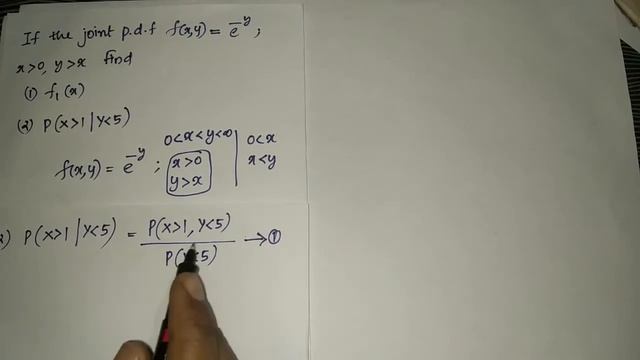 If the joint p.d.f f(x,y) = e^-y ;
x>0, y>x find
(1) f₁(x)
(2) P(X>1 | Y<5)
0<x<y<∞ | 0<x
f(x,y) = e^-y ; x>0 | x<y
y>x
2) P(X>1 | Y<5) = P(X>1, Y<5) / P(Y<5) → ①